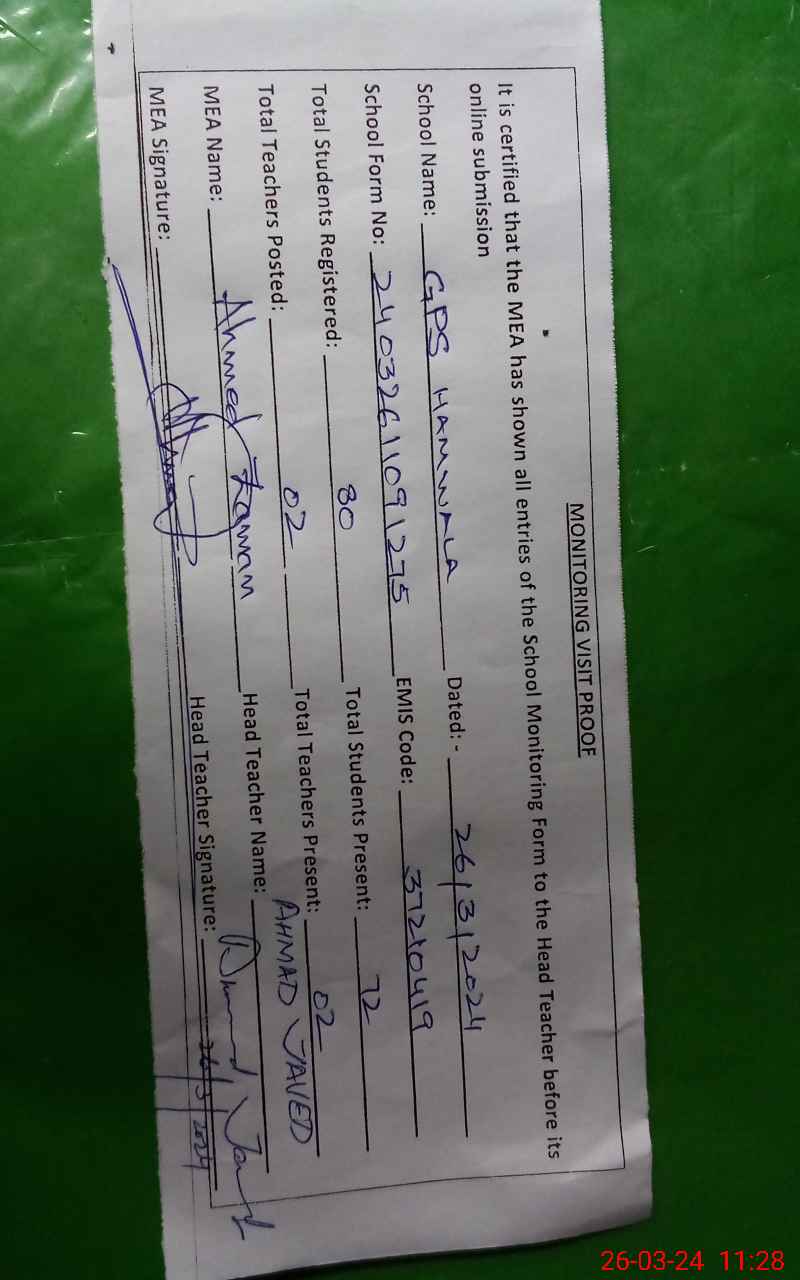 MONITORING VISIT PROOF
It is certified that the MEA has shown all entries of the School Monitoring Form to the Head Teacher before its
online submission
School Name: GPS HAMWALA Dated: - 26/3/2024
School Form No: 24032611091275 EMIS Code: 37210419
Total Students Registered: 80 Total Students Present: 72
Total Teachers Posted: 02 Total Teachers Present: 02
AHMAD JAVED
MEA Name: Ahmed Zaman Head Teacher Name:
MEA Signature: Head Teacher Signature:
26/3/2024
26-03-24 11:28